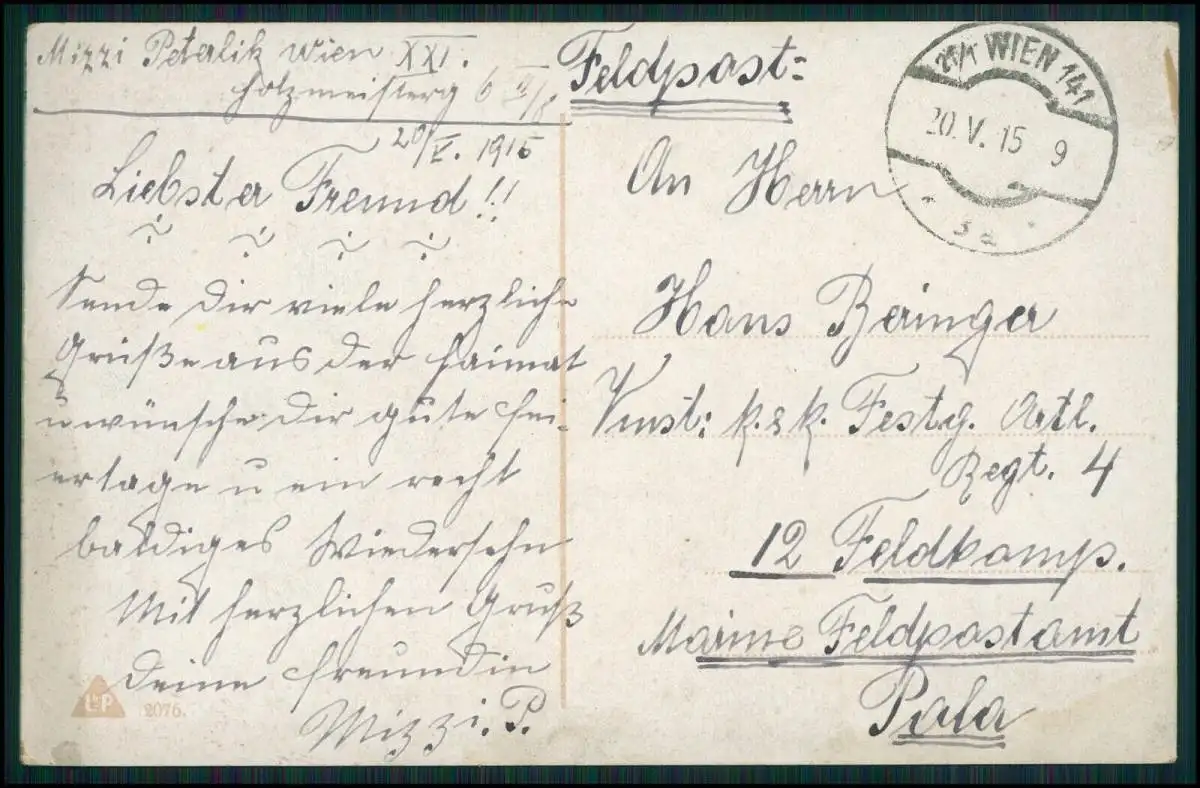 Mizzi Peterlik Wien XXI.
Holzmeisterg 6 II/8
20/V. 1915
Liebster Freund!!
Sende Dir viele herzliche
Grüße aus der Heimat
u wünsche Dir gute Fei-
ertage u ein recht
baldiges Wiedersehn
Mit herzlichen Gruß
Deine Freundin
Mizzi. P.
L&P
2076.
Feldpost=
21/1 WIEN 141
20. V. 15 9
3a
An Herrn
Hans Beringer
k. & k. Festg. Artl.
Regt. 4
12 Feldkomp.
Marine Feldpostamt
Pola